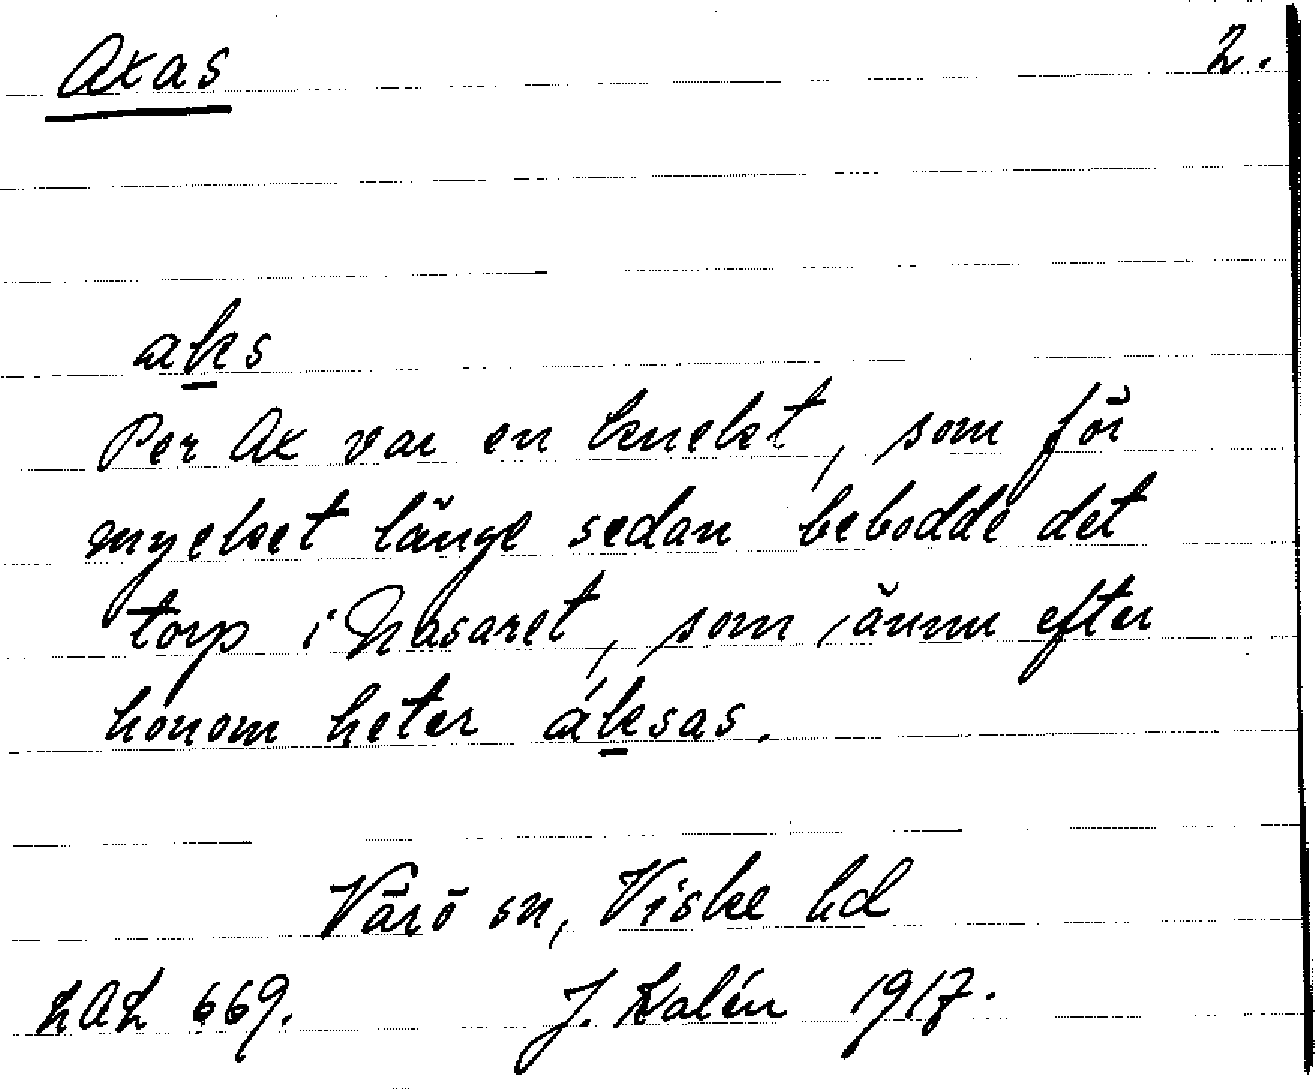 Axas 2.
aks
Per Ax var en knekt, som för
mycket länge sedan bebodde det
torp i Nasaret, som ännu efter
honom heter áksas.
Värö sn, Viske hd
LAL 669. J. Kalén 1917.